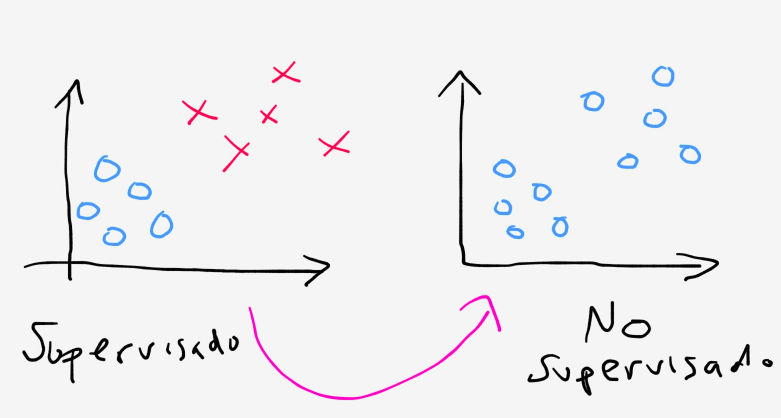 Supervisado
No
supervisado.